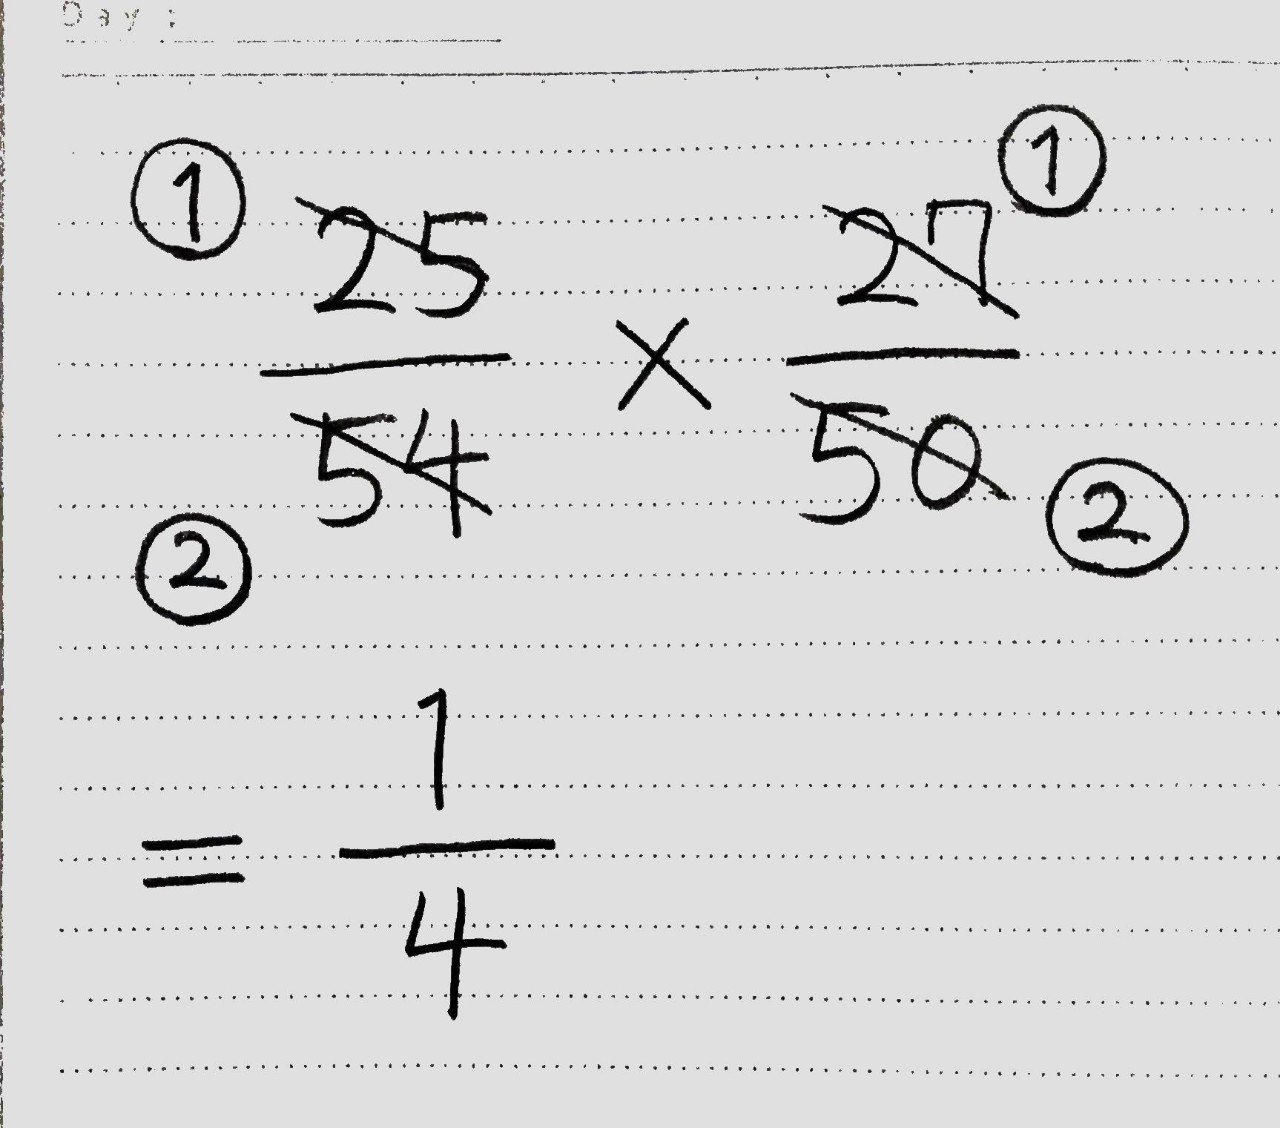 Day:
① 25/54 × 27/50 ①
② ②
= 1/4